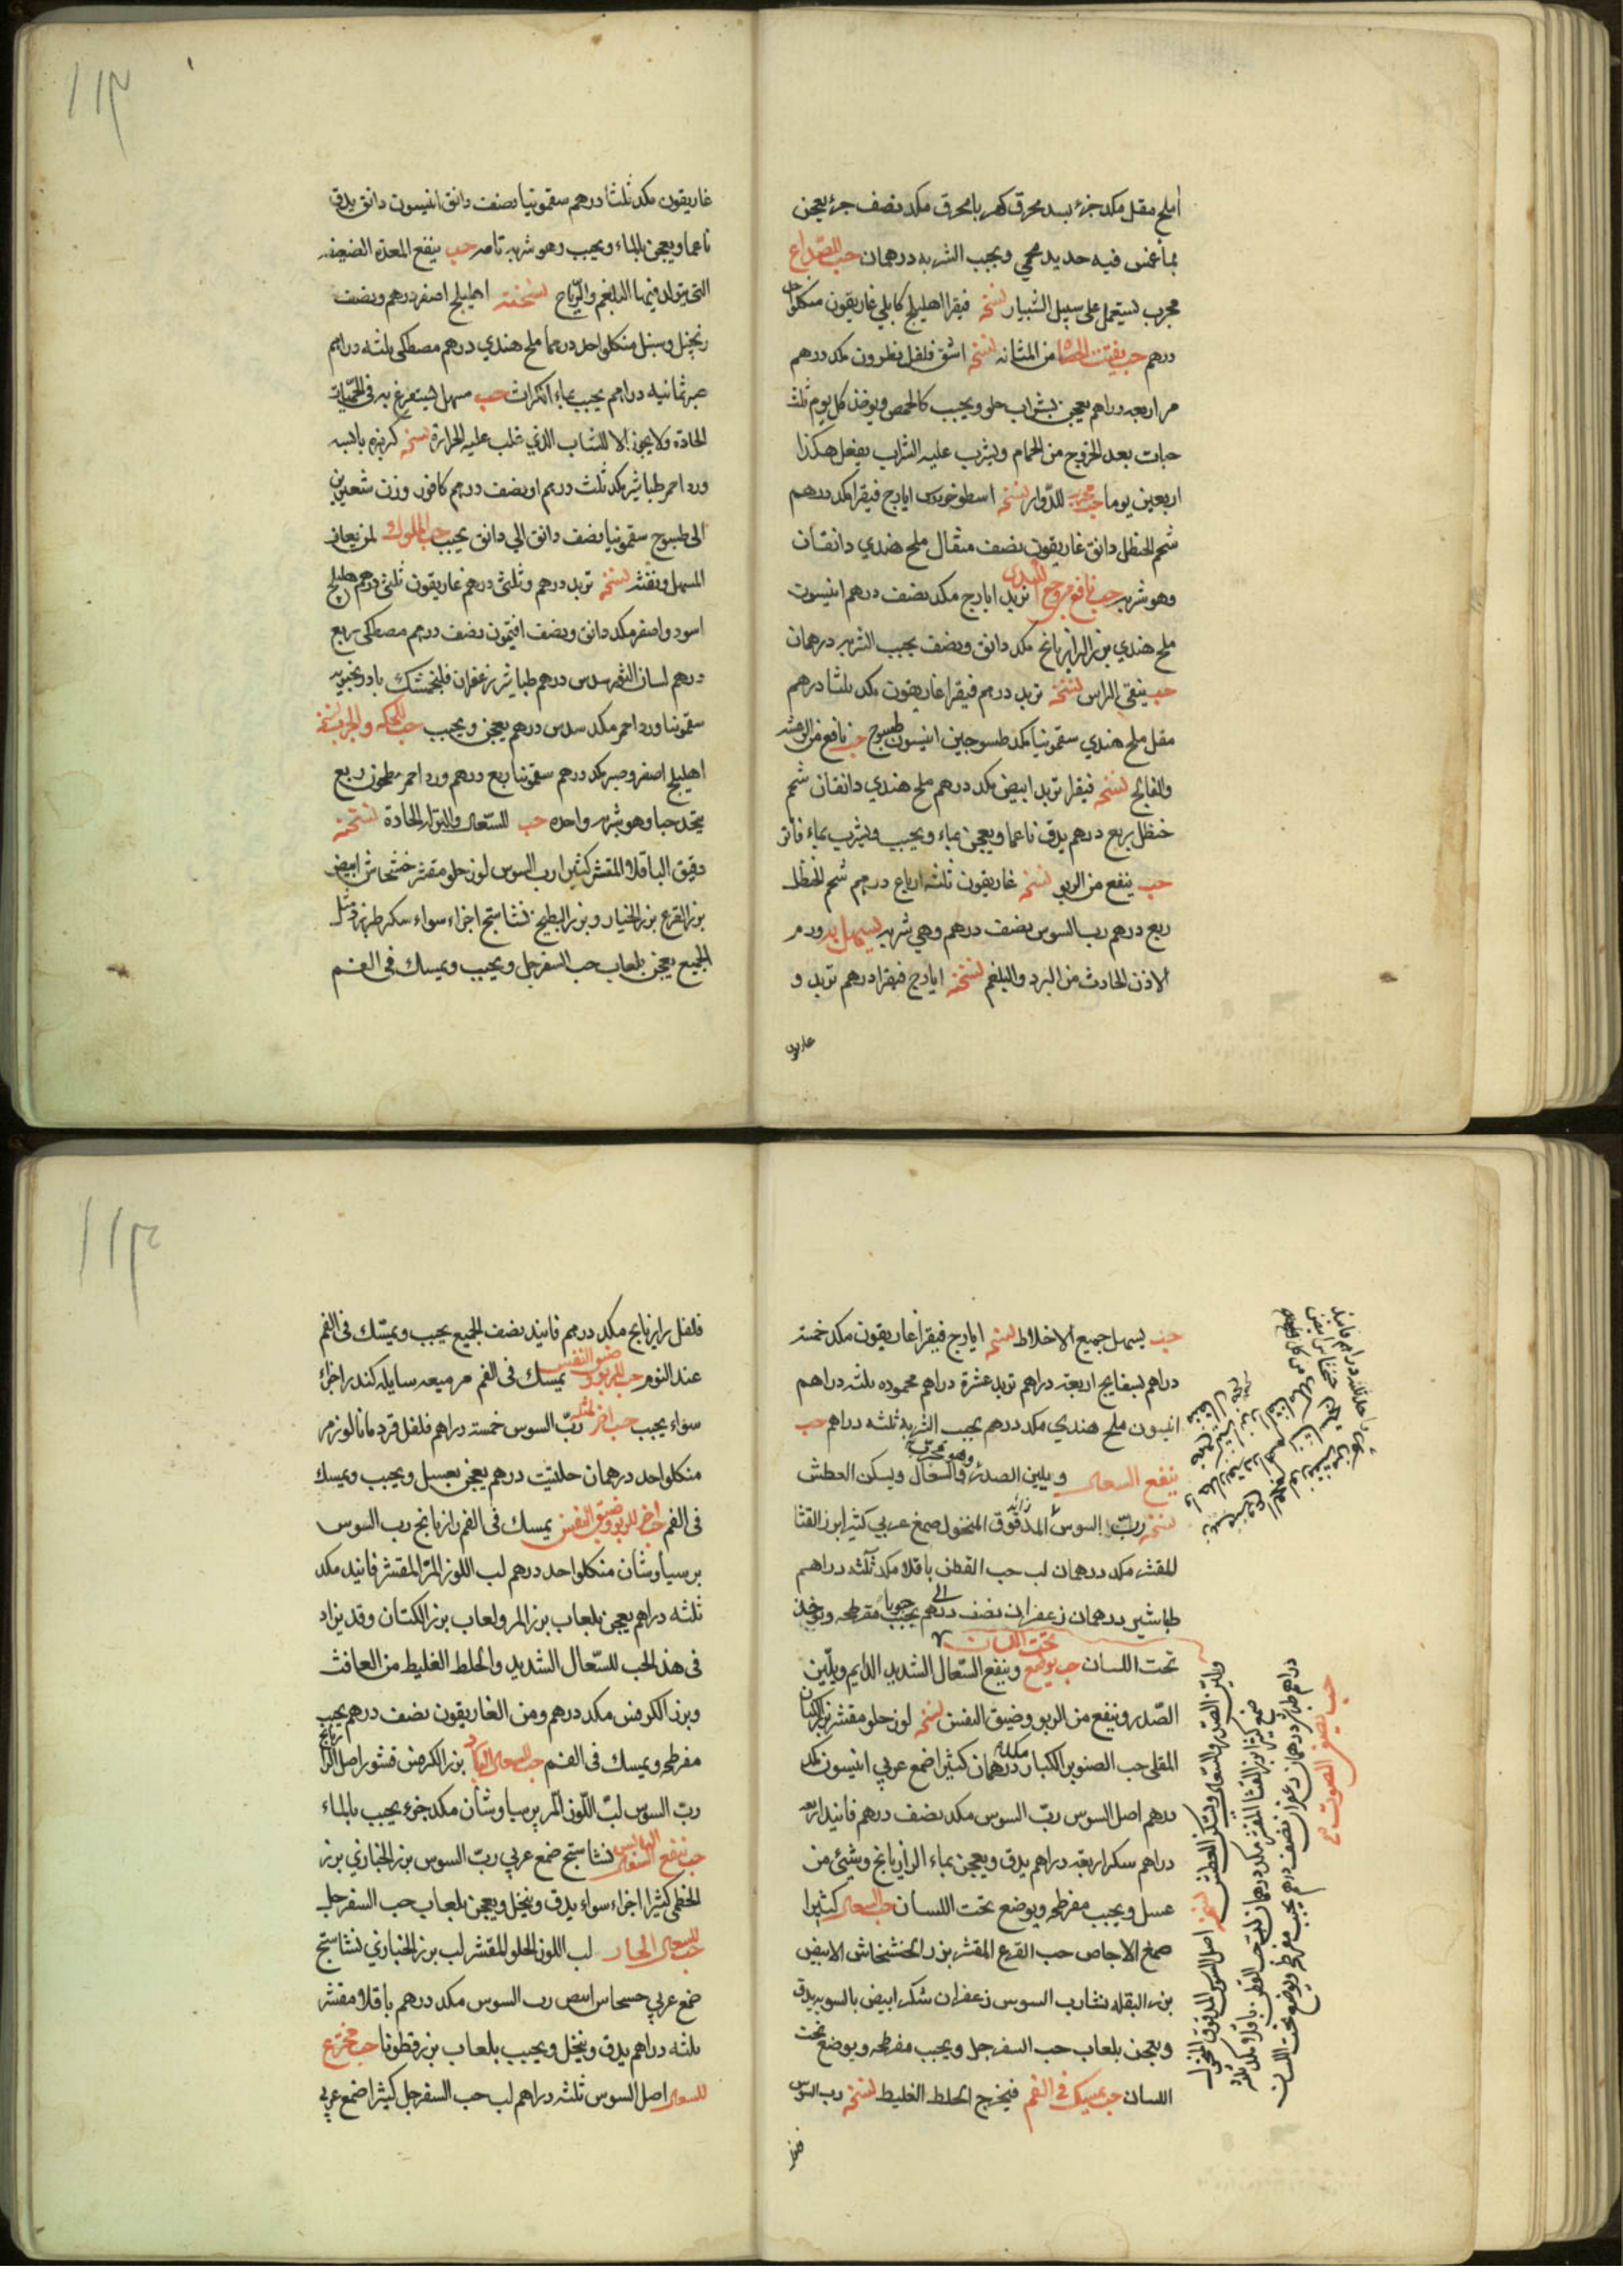 املج مقل مكد جزء بسد محرق كهربا محرق مكد نصف جزء يعجن
بماء غمس فيه حديد محمي ويحبب الشربه درهمان حب للصداع
مجرب يستعمل على سبيل الشبيار نسخته فيقرا اهليلج كابلي غاريقون منكلواحد
درهم حب يفتت الحصا من المثانه نسخته اشق فلفل نطرون مكد درهم
مر اربعه دراهم يعجن بشراب حلو ويحبب كالحمص ويوخذ كل يوم ثلث
حبات بعد الخروج من الحمام ويشرب عليه الشراب يفعل هكذا
اربعين يوما حب مجرب للدوار نسخته اسطوخودس ايارج فيقرا مكد درهم
شحم الحنظل دانق غاريقون نصف مثقال ملح هندي دانقان
وهو شربه حب نافع تربد ايارج مكد نصف درهم انيسون
ملح هندي بزر الرازيانج مكد دانق ونصف يحبب الشربه درهمان
حب ينقي الراس نسخته تربد درهم فيقرا غاريقون مكد ثلثا درهم
مقل ملح هندي سقمونيا مكد طسوجين انيسون طسوج حب نافع من الرعشه
والفالج نسخته فيقرا تربد ابيض مكد درهم ملح هندي دانقان شحم
حنظل ربع درهم يدق ناعما ويعجن بماء ويحبب ويشرب بماء فاتر
حب ينفع من الربو نسخته غاريقون ثلثه ارباع درهم شحم الحنظل
ربع درهم رب السوس نصف درهم وهي شربه يسهل به ورم
الاذن الحادث من البرد والبلغم نسخته ايارج فيقرا درهم تربد و
غاريقون
غاريقون مكد ثلثا درهم سقمونيا نصف دانق انيسون دانق يدق
ناعما ويعجن بالماء ويحبب وهو شربه تامه حب ينفع المعده الضعيفه
التي يتولد فيها البلغم والرياح نسخته اهليلج اصفر درهم ونصف
زنجبيل وسنبل منكلواحد درهما ملح هندي درهم مصطكى ثلثه دراهم
صبر ثمانيه دراهم يحبب بماء الكراث حب مسهل يستفرغ به في الحميات
الحاده ولا يجوز الا للشاب الذي غلب عليه الحراره نسخته كزبره يابسه
ورد احمر طباشير مكد ثلث درهم او نصف درهم كافور وزن شعيرتين
الى طسوج سقمونيا نصف دانق الى دانق يحبب حب الملوك لمن يعاف
المسهل نسخته تربد درهم وثلثي درهم غاريقون ثلثي درهم هليلج
اسود واصفر مكد دانق ونصف افتيمون نصف درهم مصطكى ربع
درهم لسان الثور سدس درهم طباشير زعفران فلنجمشك بادرنجبويه
سقمونيا ورد احمر مكد سدس درهم يعجن ويحبب حب للحكه والجرب نسخته
اهليلج اصفر وصبر مكد درهم سقمونيا ربع درهم ورد احمر مطحون ربع
يتخذ حبا وهو شربه واحده حب للسعال والنزله الحادة نسخته
دقيق الباقلا المقشر كثيرا رب السوس لوز حلو مقشر خشخاش ابيض
بزر القرع بزر الخيار وبزر البطيخ نشاستج اجزاء سواء سكر طبرزد مثل
الجميع يعجن بلعاب حب السفرجل ويحبب ويمسك في الفم
حب يسهل جميع الاخلاط نسخته ايارج فيقرا غاريقون مكد خمسة
دراهم بسفايج اربعة دراهم تربد عشرة دراهم محموده ثلثه دراهم
انيسون ملح هندي مكد درهم يحبب الشربه ثلثه دراهم حب
ينفع السعال ويلين الصدر والسعال ويسكن العطش
نسخته رب السوس المدقوق المنخول صمغ عربي كثيرا بزر القثا
المقشر مكد درهمان لب حب القطن باقلا مكد ثلثه دراهم
طباشير درهمان زعفران نصف درهم يحبب مفرطحه ويوخذ
تحت اللسان
تحت اللسان حب يوضع وينفع السعال الشديد الدايم ويلين
الصدر وينفع من الربو وضيق النفس نسخته لوز حلو مقشر بزر الكتان
المقلي حب الصنوبر الكبار مكد درهمان كثيرا صمغ عربي انيسون مكد
درهم اصل السوس رب السوس مكد نصف درهم فانيد اربعه
دراهم سكر اربعة دراهم يدق ويعجن بماء الرازيانج وشئ من
عسل ويحبب مفرطحه ويوضع تحت اللسان حب السعال كثيرا
صمغ الاجاص حب القرع المقشر بزر الخشخاش الابيض
بزر البقله نشا رب السوس زعفران سكر ابيض بالسويه يدق
ويعجن بلعاب حب السفرجل ويحبب مفرطحه ويوضع تحت
اللسان حب يمسك في الفم فيخرج الخلط الغليط نسخته رب السوس
فلفل
حب يصفي الصوت
ويلين الصدر والسعال ويسكن العطش نسخته اصل السوس المدقوق المنخول
صمغ كثيرا بزر القثا المقشر مكد درهمان لب حب القطن باقلا مكد ثلثه
دراهم طباشير درهمان زعفران نصف درهم يحبب مفرطحه ويوضع تحت اللسان
فلفل رازيانج مكد درهم فانيد نصف الجميع يحبب ويمسك في الفم
عند النوم حب للربو وضيق النفس يمسك في الفم مر ميعه سايله كندر اجزاء
سواء يحبب حب اخر مثله رب السوس خمسة دراهم فلفل قردمانا لوز مر
منكلواحد درهمان حلتيت درهم يعجن بعسل ويحبب ويمسك
في الفم حب اخر للربو وضيق النفس يمسك في الفم رازيانج رب السوس
برسياوشان منكلواحد درهم لب اللوز المر المقشر فانيد مكد
ثلثه دراهم يعجن بلعاب بزر المر ولعاب بزر الكتان وقد يزاد
في هذ الحب للسعال الشديد والخلط الغليط من العاقث
وبزر الكرفس مكد درهم ومن الغاريقون نصف درهم يحبب
مفرطحه ويمسك في الفم حب السعال البارد بزر الكرفس قشور اصل الرازيانج
رب السوس لب اللوز المر برسياوشان مكد جزء يحبب بالماء
حب ينفع السعال اليابس نشاستج صمغ عربي رب السوس بزر الخبازي بزر
الخطمي كثيرا اجزاء سواء يدق وينخل ويعجن بلعاب حب السفرجل
حب للسعال الحار لب اللوز الحلو المقشر لب بزر الخبازي نشاستج
صمغ عربي خسحاس ابيض رب السوس مكد درهم باقلا مقشر
ثلثه دراهم يدق وينخل ويحبب بلعاب بزر قطونا حب مخترع
للسعال اصل السوس ثلثه دراهم لب حب السفرجل كثيرا صمغ عربي